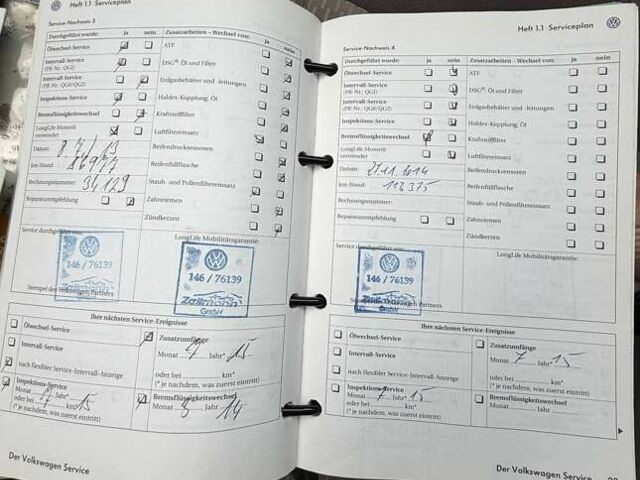 Heft 1.1 Serviceplan
Service-Nachweis 3
Durchgeführt wurde: ja nein
Zusatzarbeiten - Wechsel von: ja nein
Ölwechsel-Service
ATF
Intervall-Service
(PR-Nr.: QG1)
DSG: Öl und Filter
Intervall-Service
(PR-Nr.: QG0/QG2)
Erdgasbehälter und -leitungen
Inspektions-Service
Haldex-Kupplung: Öl
Bremsflüssigkeitswechsel
Kraftstofffilter
LongLife Motoröl
verwendet
Luftfiltereinsatz
Datum:
Reifendruckensoren
km-Stand:
Reifenfüllflasche
Rechnungsnummer: 34129
Staub- und Pollenfiltereinsatz
Reparaturempfehlung
Zahnriemen
Zündkerzen
Service durchgeführt von:
LongLife Mobilitätsgarantie:
146 / 76139
146 / 76139
GmbH
Stempel des Volkswagen Partners
Ihre nächsten Service-Ereignisse
Ölwechsel-Service
Zusatzumfänge
Intervall-Service
Monat 7 Jahr* 15
nach flexibler Service-Intervall-Anzeige
oder bei km*
(* je nachdem, was zuerst eintritt)
Inspektions-Service
Monat 7 Jahr* 15
oder bei km*
(* je nachdem, was zuerst eintritt)
Bremsflüssigkeitswechsel
Monat 8 Jahr 14
Der Volkswagen Service
Heft 1.1 Serviceplan
Service-Nachweis 4
Durchgeführt wurde: ja nein
Zusatzarbeiten - Wechsel von: ja nein
Ölwechsel-Service
ATF
Intervall-Service
(PR-Nr.: QG1)
DSG: Öl und Filter
Intervall-Service
(PR-Nr.: QG0/QG2)
Erdgasbehälter und -leitungen
Inspektions-Service
Haldex-Kupplung: Öl
Bremsflüssigkeitswechsel
Kraftstofffilter
LongLife Motoröl
verwendet
Luftfiltereinsatz
Datum: 27.11.2014
Reifendruckensoren
km-Stand: 113375
Reifenfüllflasche
Rechnungsnummer:
Staub- und Pollenfiltereinsatz
Reparaturempfehlung
Zahnriemen
Zündkerzen
Service durchgeführt von:
LongLife Mobilitätsgarantie:
146 / 76139
GmbH
Ihre nächsten Service-Ereignisse
Ölwechsel-Service
Zusatzumfänge
Intervall-Service
Monat 7 Jahr* 15
nach flexibler Service-Intervall-Anzeige
oder bei km*
(* je nachdem, was zuerst eintritt)
Inspektions-Service
Monat 7 Jahr* 15
oder bei km*
(* je nachdem, was zuerst eintritt)
Bremsflüssigkeitswechsel
Monat Jahr
Der Volkswagen Service